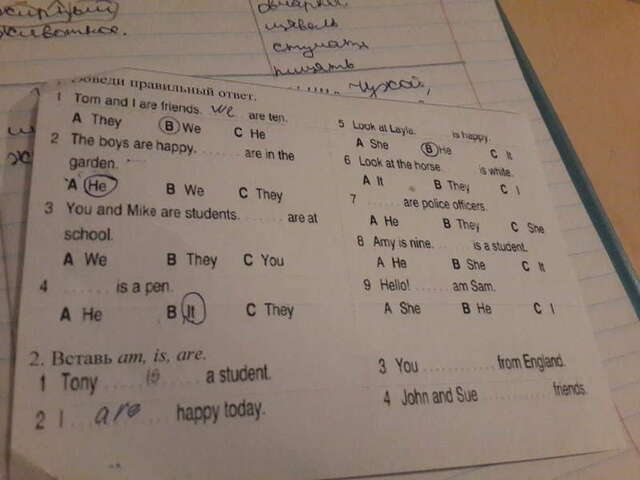 животное.
овчарка
щавель
стучать
пищать
чужой,
обведи правильный ответ.
1 Tom and I are friends. we are ten.
A They B We C He
2 The boys are happy. ....... are in the
garden.
A He B We C They
3 You and Mike are students. ....... are at
school.
A We B They C You
4 ....... is a pen.
A He B It C They
5 Look at Layla. ....... is happy.
A She B He C It
6 Look at the horse. ....... is white.
A It B They C I
7 ....... are police officers.
A He B They C She
8 Amy is nine. ....... is a student.
A He B She C It
9 Hello! ....... am Sam.
A She B He C I
2. Вставь am, is, are.
1 Tony ..... is ..... a student.
2 I ... are ... happy today.
3 You ............ from England.
4 John and Sue ............ friends.